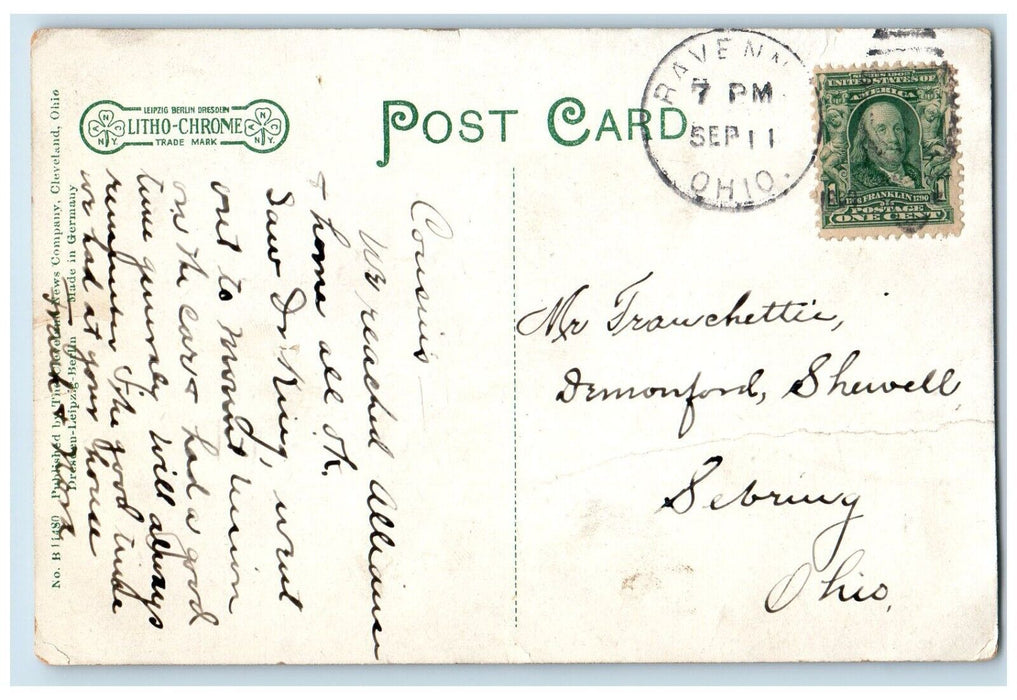 LEIPZIG BERLIN DRESDEN
LITHO-CHROME
TRADE MARK
N.Y.
POST CARD
RAVENN
7 PM
SEP 11
OHIO.
SERIES 1902
UNITED STATES OF
AMERICA
1706 FRANKLIN 1790
POSTAGE
ONE CENT
No. B 11480 Published by The Cleveland News Company, Cleveland, Ohio
Dresden-Leipzig-Berlin Made in Germany
Cousins
We reached Alliance
& home all ok.
Saw Dr King, went
out to Mount Union
on the cars & had a good
time generaly will always
remember the good time
we had at your house
Mr Franchettie,
Demonford, Shewell
Sebring
Ohio.